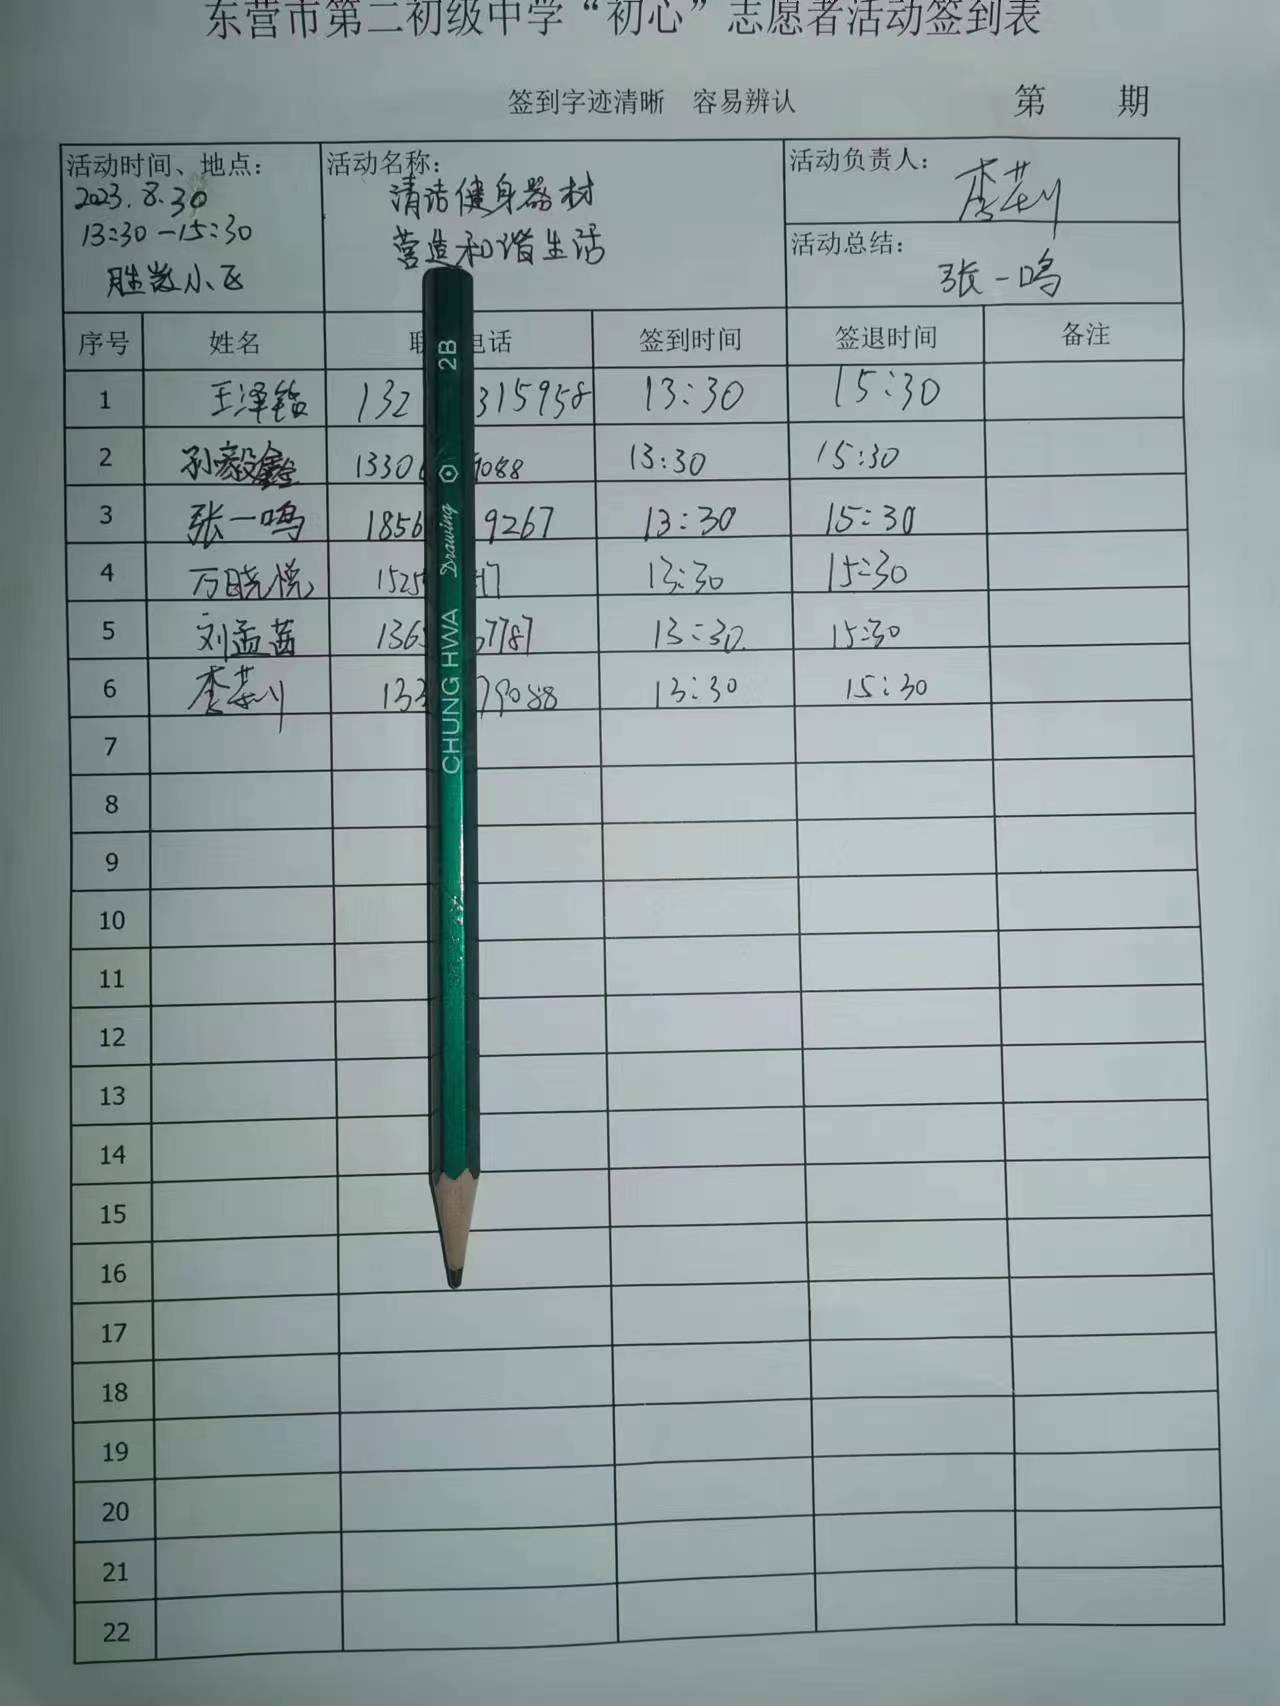 东营市第二初级中学“初心”志愿者活动签到表
签到字迹清晰 容易辨认 第 期
活动时间、地点: 活动名称: 活动负责人:
2023.8.30
13:30-15:30
小区
清洁健身器材
营造和谐生活
活动总结:
张一鸣
序号 姓名 电话 签到时间 签退时间 备注
1 王泽铭 132 315958 13:30 15:30
2 孙毅鑫 1330 9088 13:30 15:30
3 张一鸣 1856 9267 13:30 15:30
4 万晓悦 1525 17 13:30 15:30
5 刘孟茜 136 7787 13:30 15:30
6 133 79088 13:30 15:30
7
8
9
10
11
12
13
14
15
16
17
18
19
20
21
22
CHUNG HWA Drawing 2B